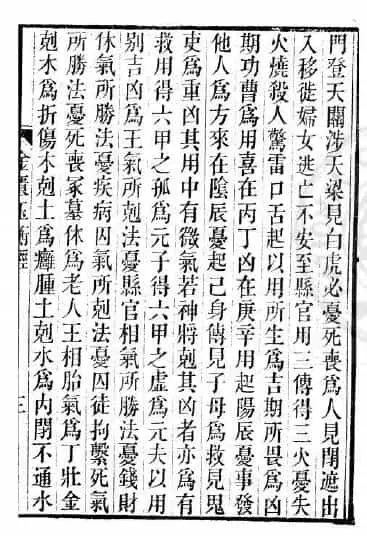 門登天關涉天梁見白虎必憂死喪爲人見閉遮出
入移徙婦女逃亡不安至縣官用三傳得三火憂失
火燒殺人驚雷口舌起以用所生爲吉期所畏爲凶
期功曹爲用喜在丙丁凶在庚辛用起陽辰憂事發
他人爲方來在陰辰憂起己身傳見子母爲救見鬼
吏爲重凶其用中有微氣若神將剋其凶者亦爲有
救用得六甲之孤爲元子得六甲之虛爲元夫以用
別吉凶爲王氣所剋法憂縣官相氣所勝法憂錢財
休氣所勝法憂疾病囚氣所剋法憂囚徒拘繫死氣
所勝法憂死喪冢墓休爲老人王相胎氣爲丁壯金
剋木爲折傷木剋土爲癰腫土剋水爲内閉不通水
金匱玉衡經
三